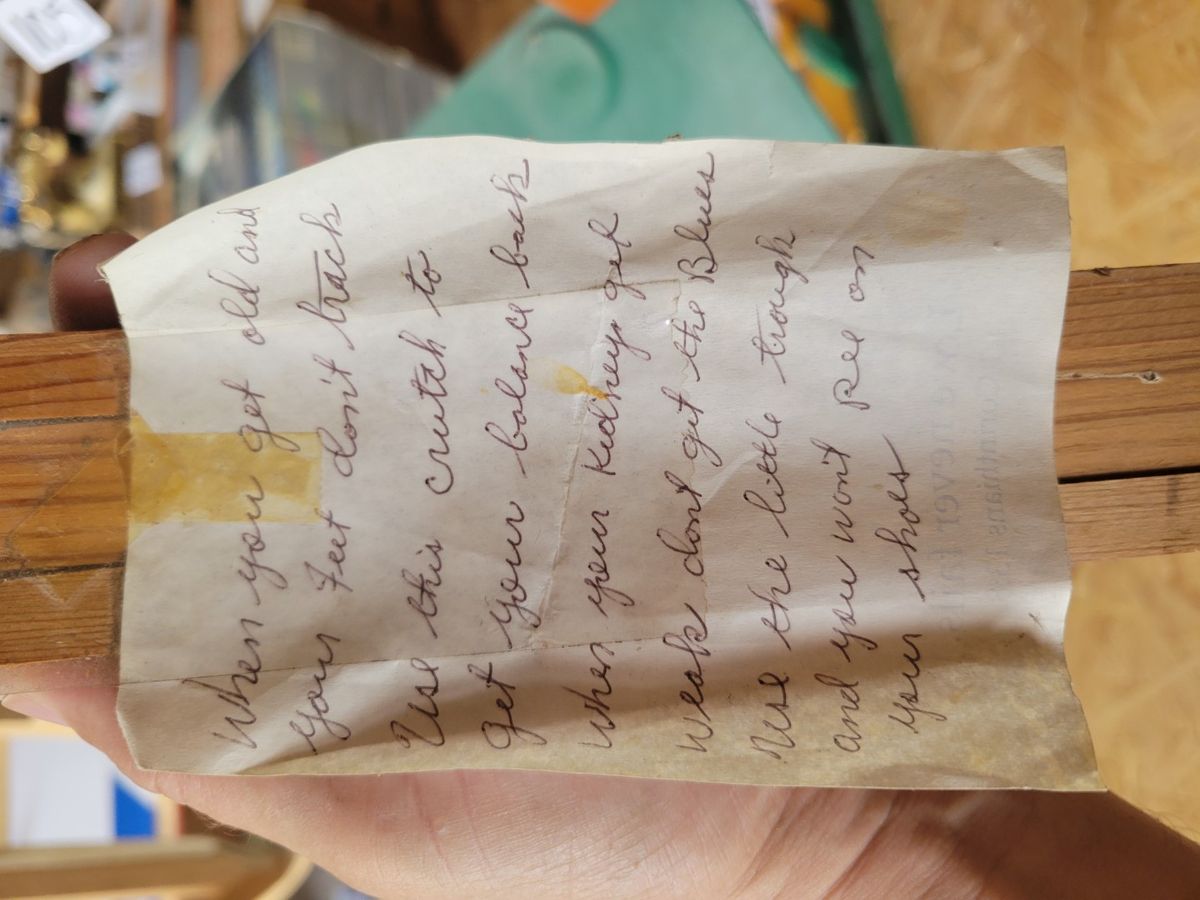 When you get old and
your Feet don't track
Use this crutch to
get your balance back
when your kidneys get
weak dont get the Blues
Use the little trough
and you won't pee on
your shoes